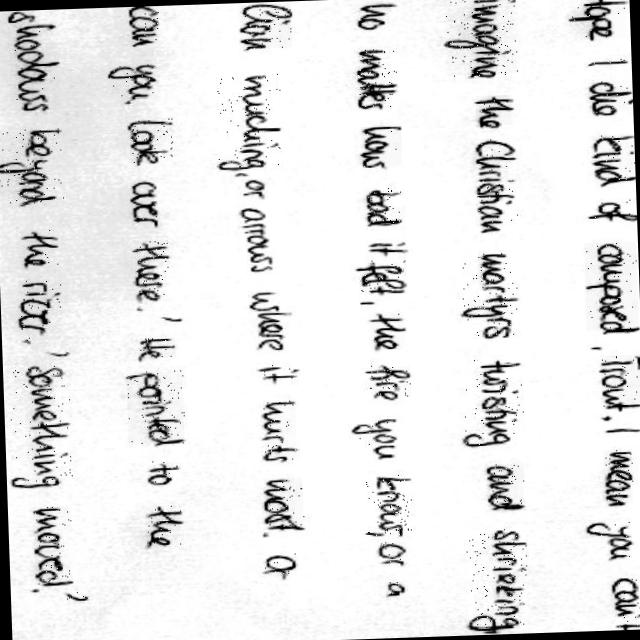 hope I die kind of composed, Trout. I mean you can't
imagine the Christian martyrs twisting and shrieking
no matter how bad it felt, the fire you know, or a
lion mauling, or arrows where it hurts most. Or
can you. Look over there.' He pointed to the
shadows beyond the river. 'Something moved.'